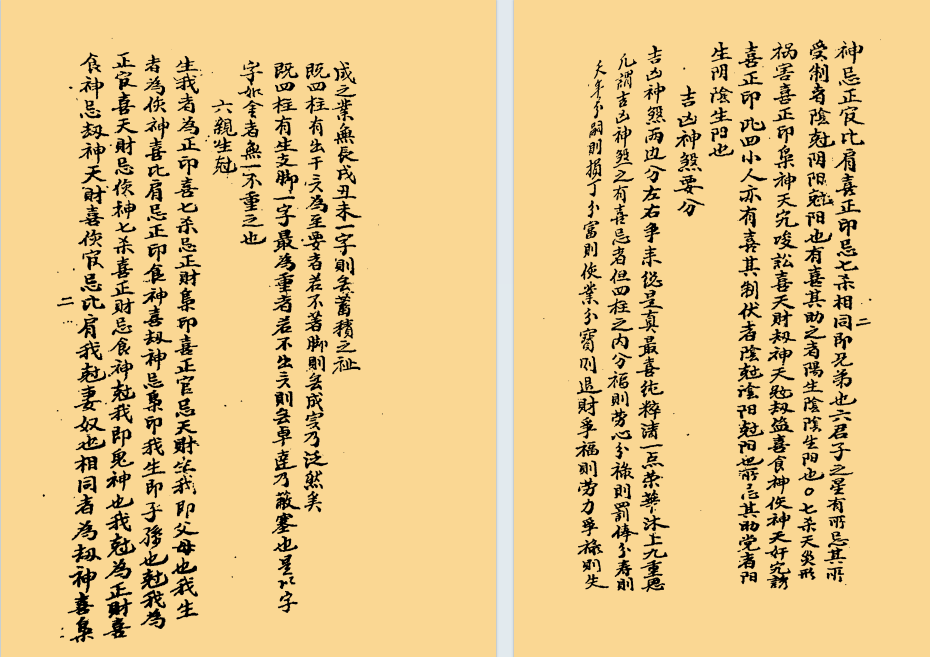 成之業無長戌丑未一字則無蓄積之祉
既四柱有出干六為至要者若不著脚則無成实乃泛然矣
既四柱有生支脚一字最為重者若不出六則無卓達乃蔽塞也是以字
字如金者無一不重之也
六親生尅
生我者為正印喜七杀忌正財梟印喜正官忌天財生我即父母也我生
者為傷神喜比肩忌正印食神喜劫神忌梟印我生即子孫也尅我為
正官喜天財忌傷神七杀喜正財忌食神尅我即鬼神也我尅為正財喜
食神忌劫神天財喜傷官忌比肩我尅妻奴也相同者為劫神喜梟
二
二
神忌正官比肩喜正印忌七杀相同即兄弟也六君子之星有所忌其所
受制者陰尅阴阳尅阳也有喜其助之者陽生陰陰生阳也○七杀天災形
祸害喜正印梟神天宄唆訟喜天財劫神天尅劫盗喜食神傷神天奸宄謗
喜正印此四小人亦有喜其制伏者陰尅陰阳尅阳也所忌其助党者阳
生阴陰生阳也
吉凶神煞要分
吉凶神煞两边分左右爭来総是真最喜纯粹清一点荣華沐上九重恩
凡謂吉凶神煞之有喜忌者但四柱之内分福則劳心分祿則罰俸分寿則
夭年分嗣則損丁分富則傷業分寶則退財爭福則劳力爭祿則失